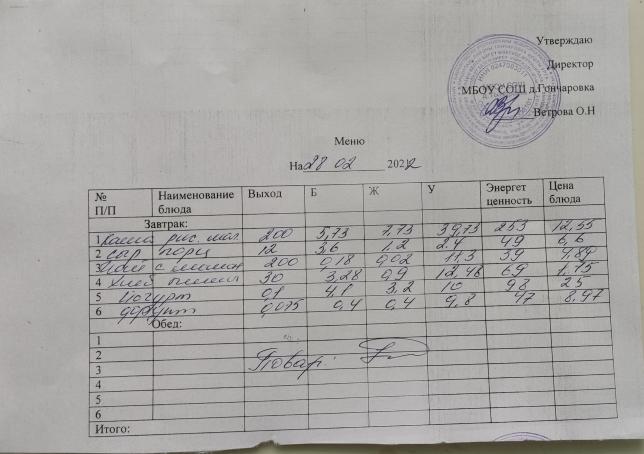 Утверждаю
Директор
МБОУ СОШ д.Гончаровка
Ветрова О.Н
Меню
На 28 02 2022
№ П/П Наименование блюда Выход Б Ж У Энергет ценность Цена блюда
Завтрак:
1 Каша рис. мол. 200 5,73 7,73 39,73 253 12,55
2 сыр порц 12 3,6 1,2 2,4 49 6,6
3 Чай с 200 0,18 0,02 11,3 39 4,84
4 Хлеб 30 3,28 0,9 12,48 69 1,75
5 Йогурт 0,1 4,1 3,2 10 98 25
6 0,075 0,4 0,4 9,8 47 8,97
Обед:
1
2
3
4
5
6
Итого:
Повар: